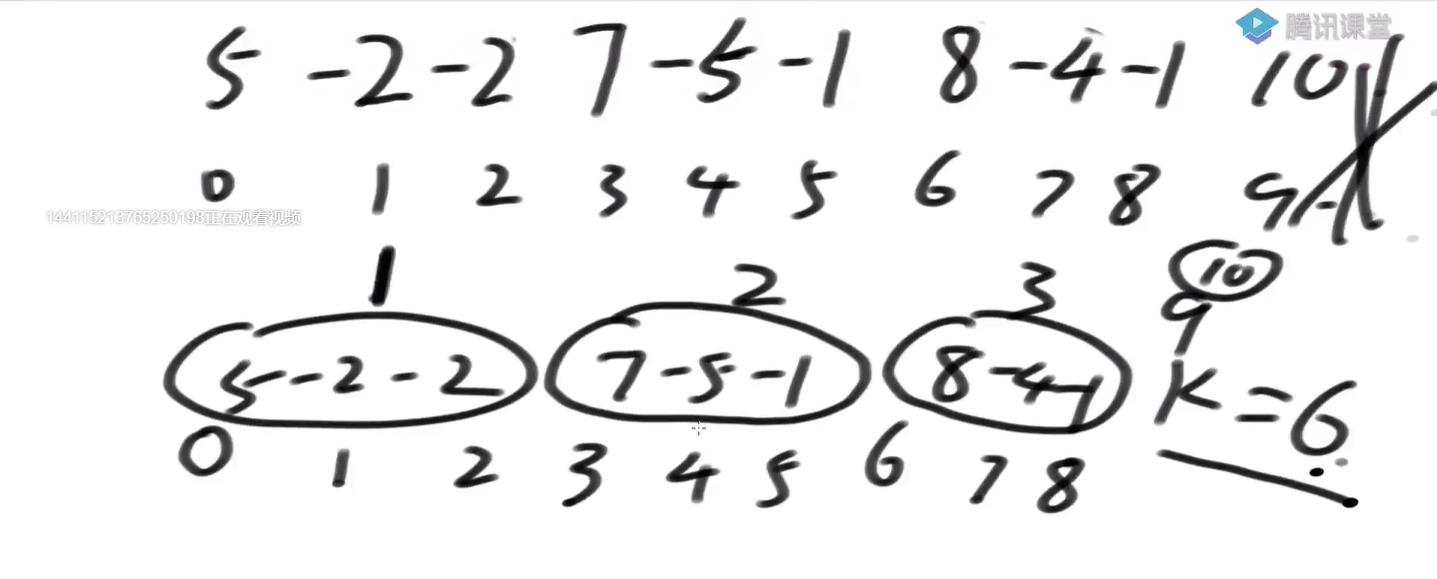 腾讯课堂
5 -2 -2 7 -5 -1 8 -4 -1 10
0 1 2 3 4 5 6 7 8 9
144115213765250198正在观看视频
1 2 3 10
9
5 -2 -2 7 -5 -1 8 -4 -1 K = 6
0 1 2 3 4 5 6 7 8